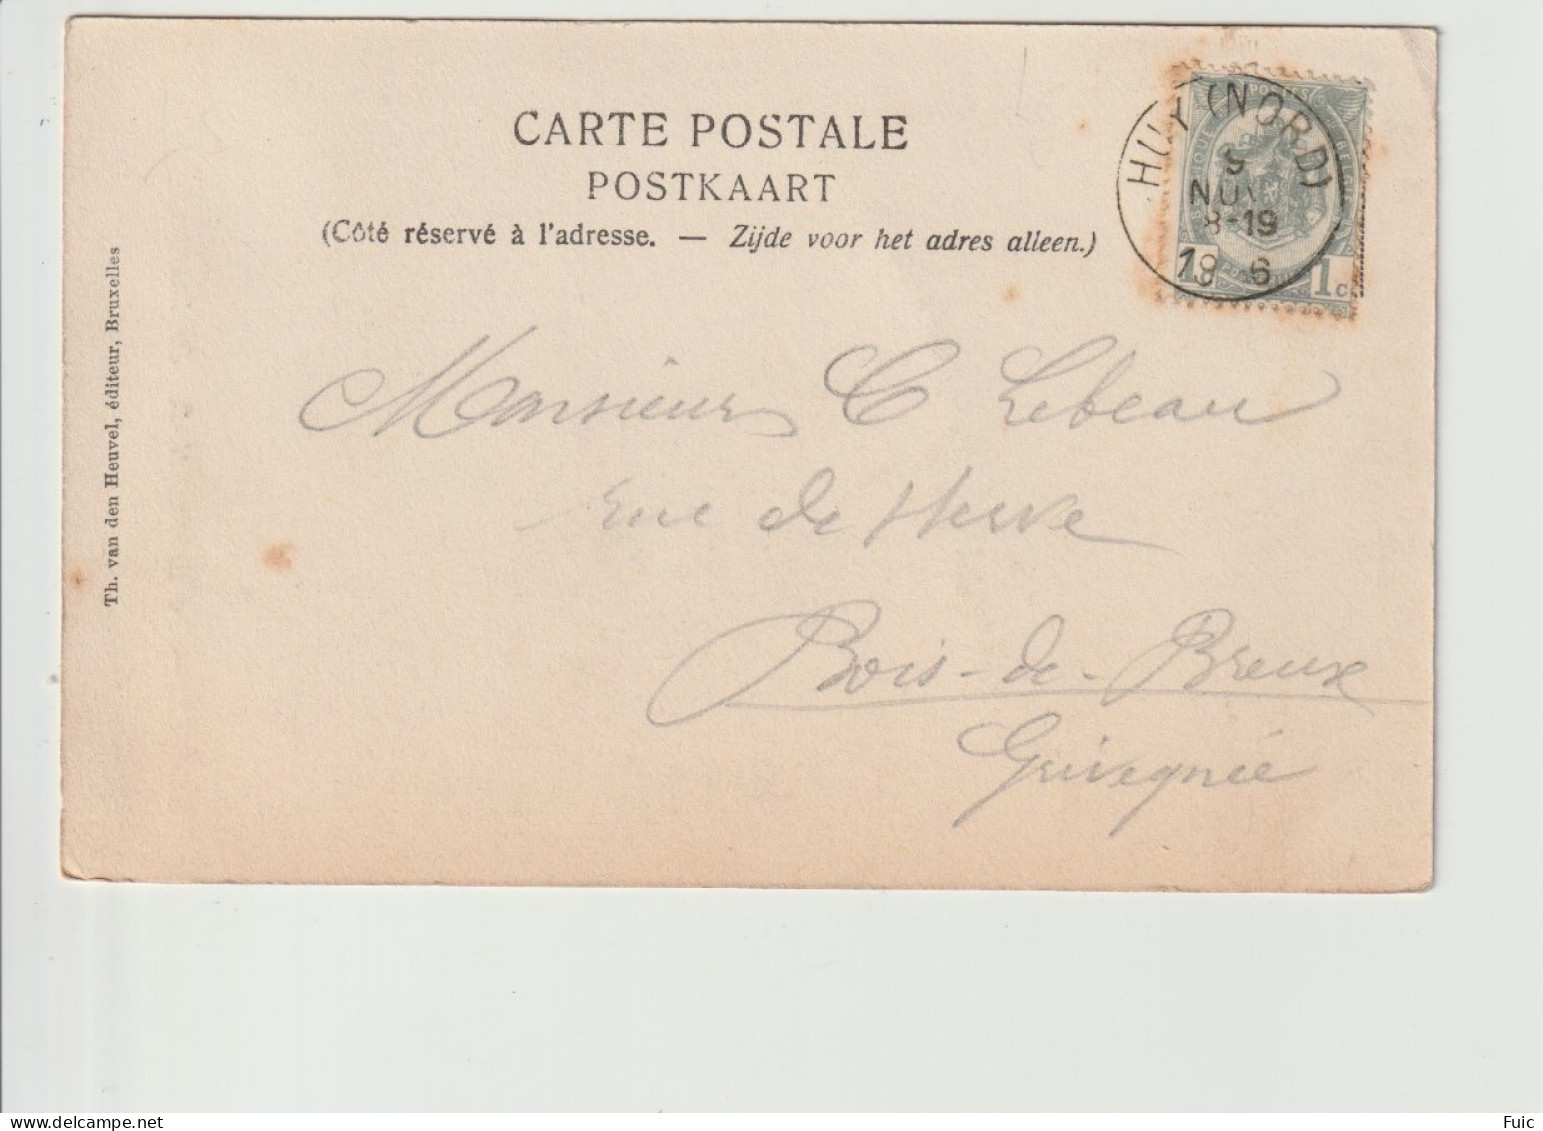 CARTE POSTALE
POSTKAART
(Côté réservé à l'adresse. — Zijde voor het adres alleen.)
HUY (NORD)
5
NOV
8-19
19 6
1c
Th. van den Heuvel, éditeur, Bruxelles
Monsieur C Lebeau
rue de Herve
Bois-de-Breux
Grivegnée
www.delcampe.net
Fuic